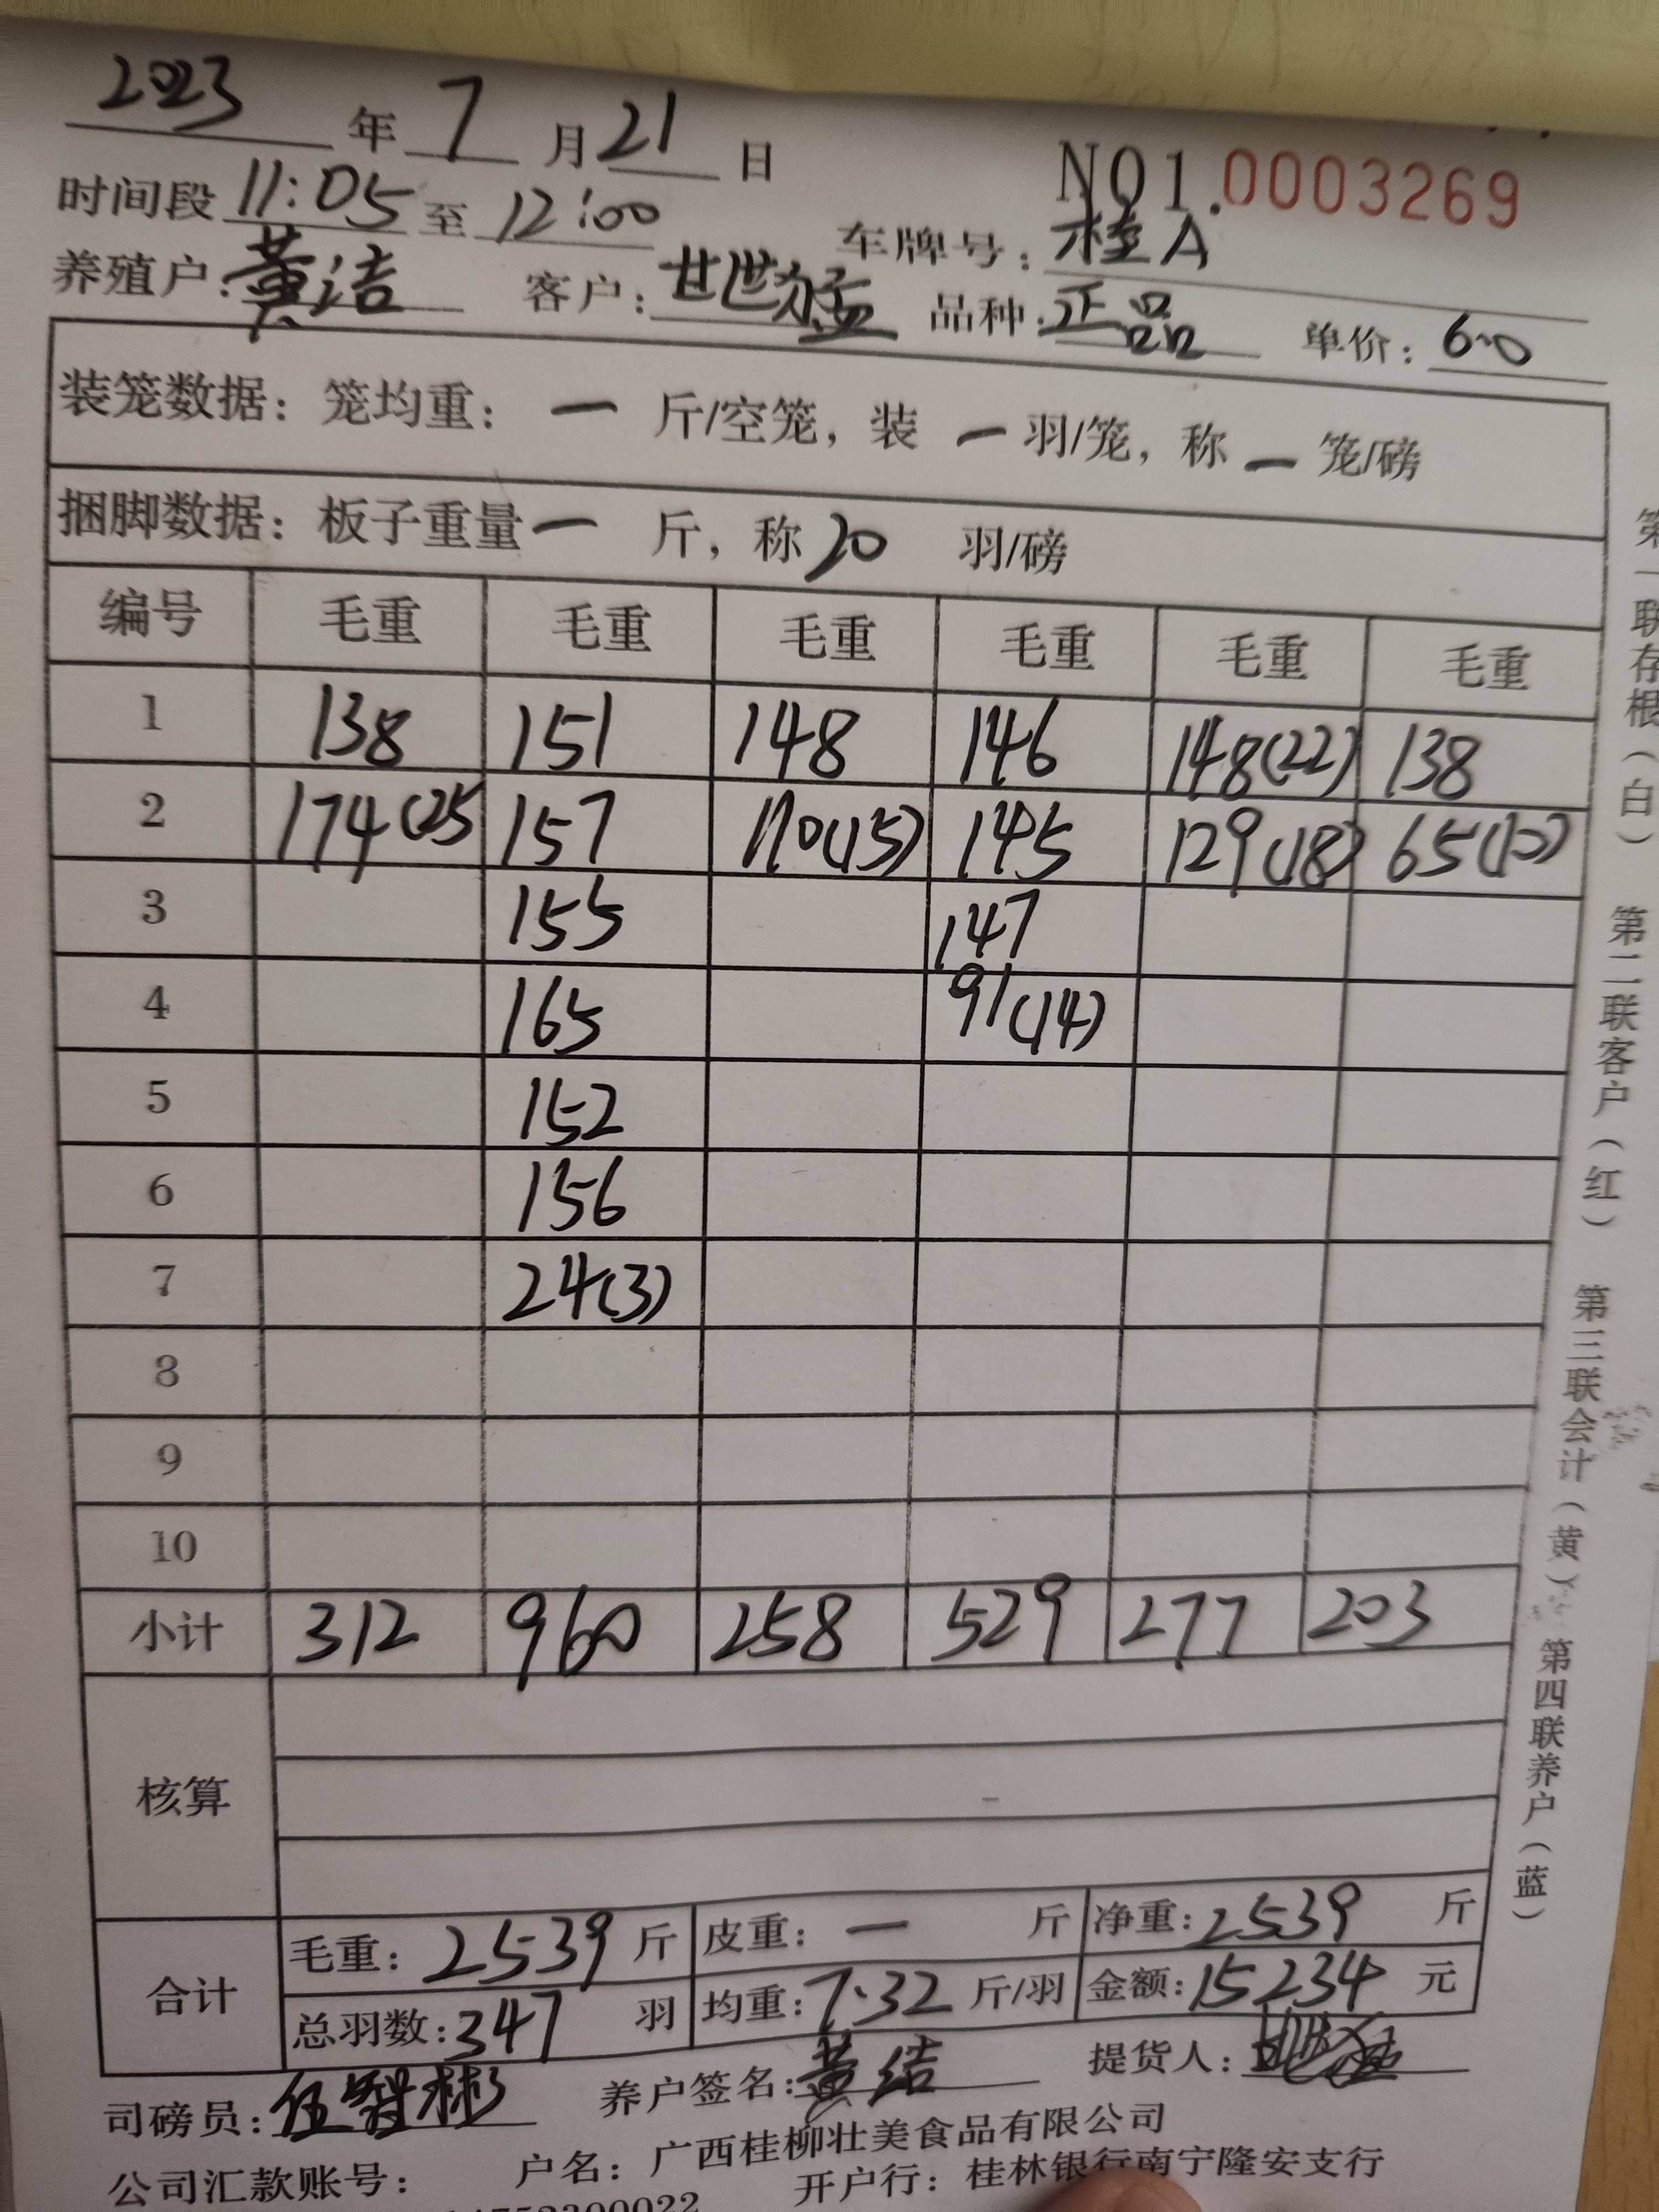 2023 年 7 月 21 日
NO1.0003269
时间段 11:05 至 12:00 车牌号：桂A
养殖户：黄洁 客户：甘世猛 品种：正品 单价：6.0
装笼数据：笼均重：一 斤/空笼，装 一 羽/笼，称 一 笼/磅
捆脚数据：板子重量 一 斤，称 20 羽/磅
编号 毛重 毛重 毛重 毛重 毛重 毛重
1 138 151 148 146 148(22) 138
2 174(25 157 110(15) 145 129(18) 65(10)
3 155 147
4 165 91(14)
5 152
6 156
7 24(3)
8
9
10
小计 312 960 258 529 277 203
核算
合计
毛重：2539 斤 皮重：一 斤 净重：2539 斤
总羽数：347 羽 均重：7.32 斤/羽 金额：15234 元
司磅员：伍智彬 养户签名：黄结 提货人：
公司汇款账号： 户名：广西桂柳壮美食品有限公司
开户行：桂林银行南宁隆安支行
第一联存根（白） 第二联客户（红） 第三联会计（黄） 第四联养户（蓝）